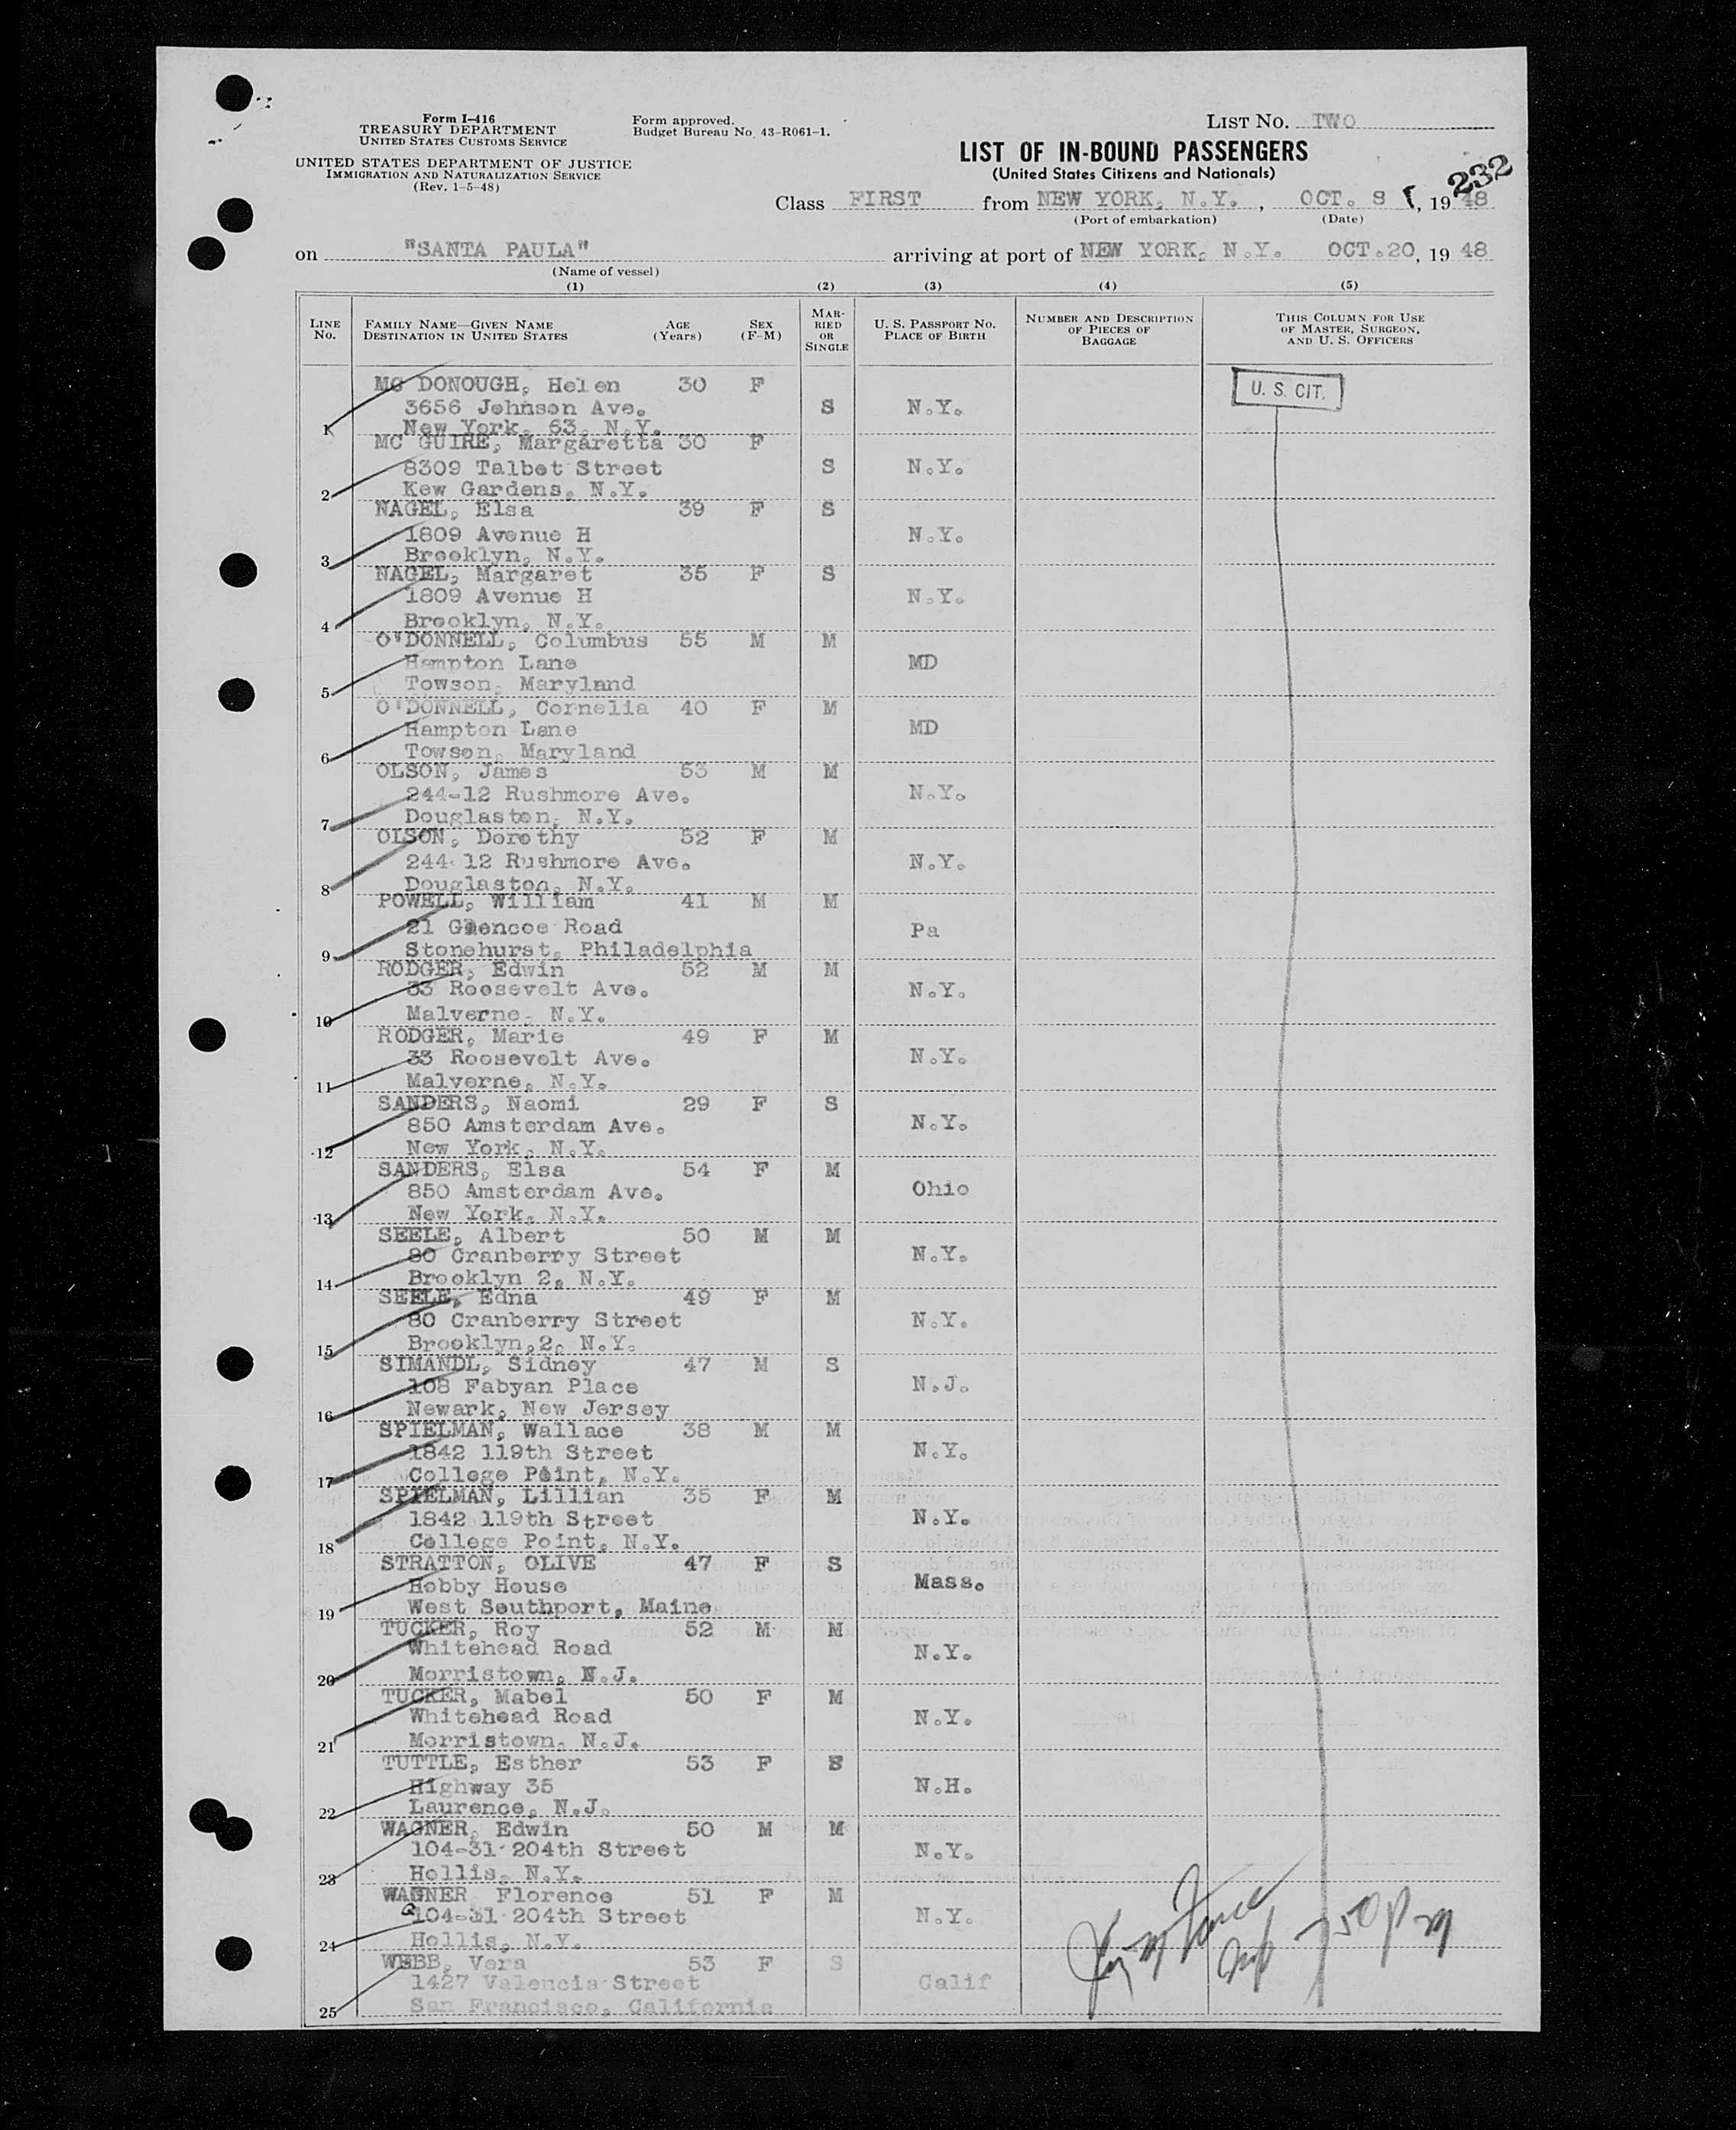 Form I-416
TREASURY DEPARTMENT
UNITED STATES CUSTOMS SERVICE
UNITED STATES DEPARTMENT OF JUSTICE
IMMIGRATION AND NATURALIZATION SERVICE
(Rev. 1-5-48)
Form approved.
Budget Bureau No. 43-R061-1.
LIST NO. TWO
LIST OF IN-BOUND PASSENGERS
(United States Citizens and Nationals)
232
Class FIRST from NEW YORK, N.Y., OCT. 8, 1948
(Port of embarkation) (Date)
on "SANTA PAULA" arriving at port of NEW YORK, N.Y. OCT.20, 1948
(Name of vessel)
(1) (2) (3) (4) (5)
LINE No. FAMILY NAME—GIVEN NAME DESTINATION IN UNITED STATES AGE (Years) SEX (F-M) MARRIED OR SINGLE U. S. PASSPORT NO. PLACE OF BIRTH NUMBER AND DESCRIPTION OF PIECES OF BAGGAGE THIS COLUMN FOR USE OF MASTER, SURGEON, AND U. S. OFFICERS
MC DONOUGH, Helen 30 F
U. S. CIT.
3656 Johnson Ave. S N.Y.
1 New York, 63, N.Y.
MC GUIRE, Margaretta 30 F
8309 Talbot Street S N.Y.
2 Kew Gardens, N.Y.
NAGEL, Elsa 39 F S
1809 Avenue H N.Y.
3 Brooklyn, N.Y.
NAGEL, Margaret 35 F S
1809 Avenue H N.Y.
4 Brooklyn, N.Y.
O'DONNELL, Columbus 55 M M
Hampton Lane MD
5 Towson, Maryland
O'DONNELL, Cornelia 40 F M
Hampton Lane MD
6 Towson, Maryland
OLSON, James 53 M M
244-12 Rushmore Ave. N.Y.
7 Douglaston, N.Y.
OLSON, Dorothy 52 F M
244-12 Rushmore Ave. N.Y.
8 Douglaston, N.Y.
POWELL, William 41 M M
21 Glencoe Road Pa
9 Stonehurst, Philadelphia
RODGER, Edwin 52 M M
33 Roosevelt Ave. N.Y.
10 Malverne, N.Y.
RODGER, Marie 49 F M
33 Roosevelt Ave. N.Y.
11 Malverne, N.Y.
SANDERS, Naomi 29 F S
850 Amsterdam Ave. N.Y.
12 New York, N.Y.
SANDERS, Elsa 54 F M
850 Amsterdam Ave. Ohio
13 New York, N.Y.
SEELE, Albert 50 M M
80 Cranberry Street N.Y.
14 Brooklyn 2, N.Y.
SEELE, Edna 49 F M
80 Cranberry Street N.Y.
15 Brooklyn,2, N.Y.
SIMANDL, Sidney 47 M S
108 Fabyan Place N.J.
16 Newark, New Jersey
SPIELMAN, Wallace 38 M M
1842 119th Street N.Y.
17 College Point, N.Y.
SPIELMAN, Lillian 35 F M
1842 119th Street N.Y.
18 College Point, N.Y.
STRATTON, OLIVE 47 F S
Hobby House Mass.
19 West Southport, Maine
TUCKER, Roy 52 M M
Whitehead Road N.Y.
20 Morristown, N.J.
TUCKER, Mabel 50 F M
Whitehead Road N.Y.
21 Morristown, N.J.
TUTTLE, Esther 53 F S
Highway 35 N.H.
22 Laurence, N.J.
WAGNER, Edwin 50 M M
104-31 204th Street N.Y.
23 Hollis, N.Y.
WAGNER Florence 51 F M
104-31 204th Street N.Y.
24 Hollis, N.Y.
7 50 PM
WEBB, Vera 53 F S
1427 Valencia Street Calif
25 San Francisco, California